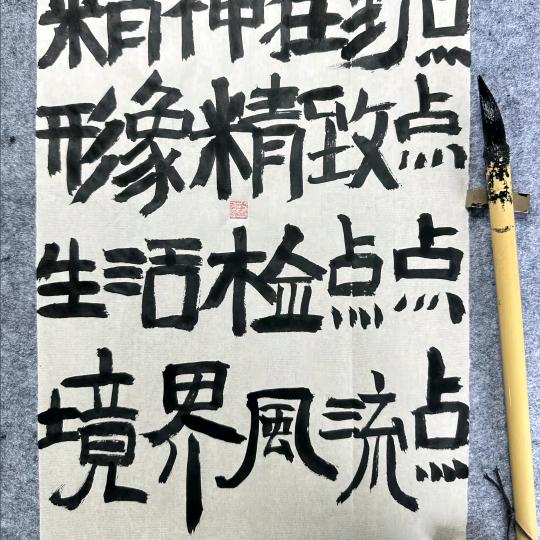 精神点
形象精致点
生活检点点
境界風流点